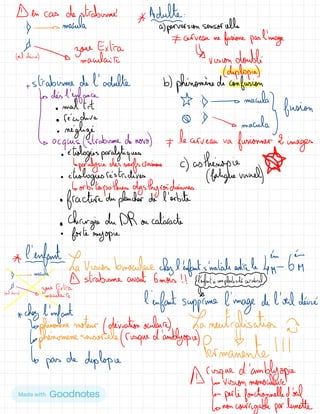 ⚠ en cas de strabisme
macula
(œil dévié)
zone Extra
maculaire
+ strabisme de l'adulte
↳ dès l'enfance
• mal trt
• récidive
• négligé
↳ acquis (strabisme de novo)
• étiologies paralytiques
↳ paralysie des nerfs crâniens
• étiologies restrictives
↳ orbitopathies dysthyroïdiennes
• fracture du plancher de l'orbite
• Chirurgie du DR ou cataracte
• forte myopie
* Adulte
a) perversion sensorielle
≠ cerveau ne fusionne pas l'image
↳ vision double
(diplopie)
b) phénomène de confusion
macula
macula
fusion
≠ le cerveau va fusionner 2 images
c) asthénopie
(fatigue visuel)
* l'enfant
La vision binoculaire chez l'enfant s'installe entre le 4ème – 6ème
M
⚠ strabisme avant 6 mois !!
macula
zone Extra
maculaire
l'enfant supprime l'image de l'œil dévié
* chez l'enfant
↳ phénomène moteur (déviation oculaire)
↳ phénomène sensoriel (risque d'amblyopie)
↳ pas de diplopie
La neutralisation
Permanente !!!
⚠ risque d'amblyopie
↳ vision monoculaire
↳ perte fonctionnelle d'œil
↳ non corrigable par lunette
Made with Goodnotes